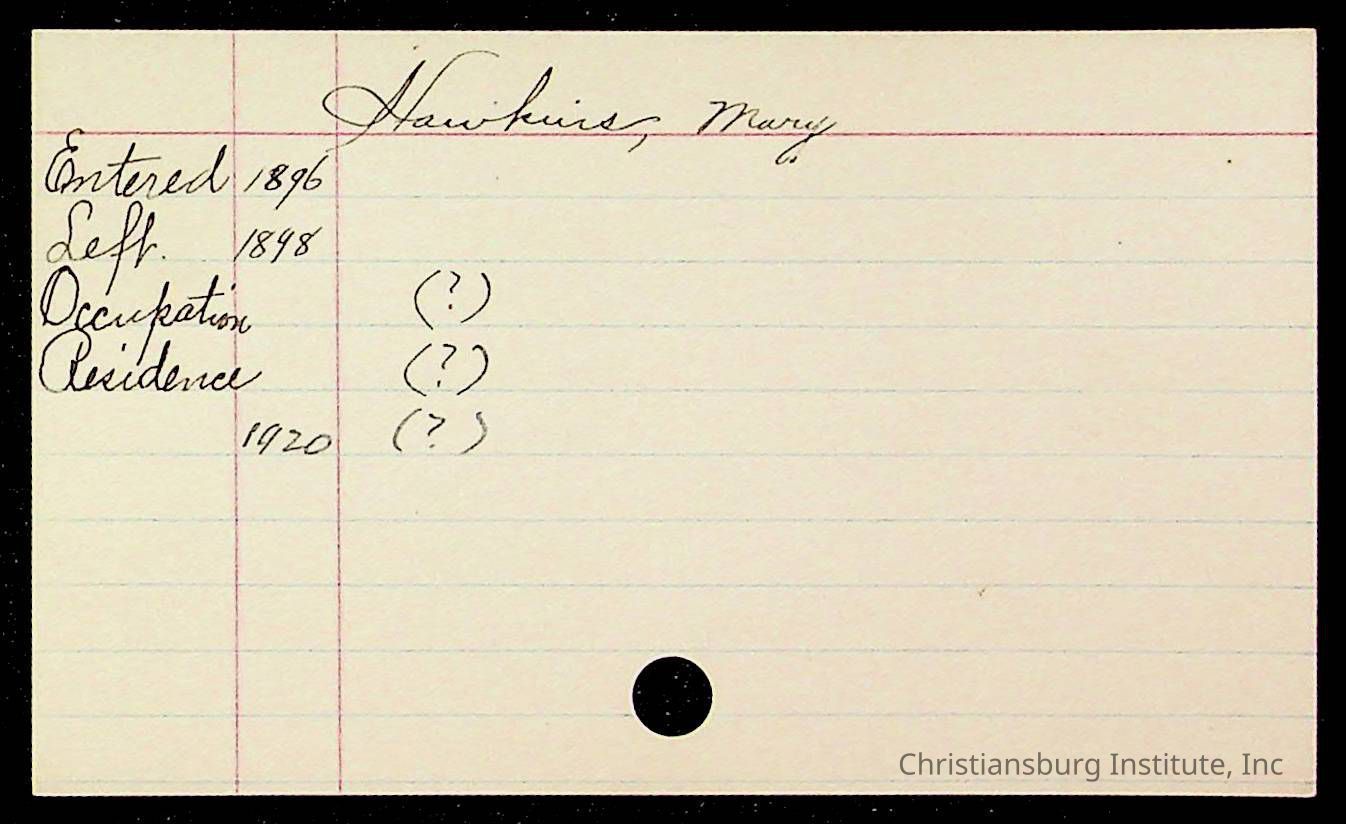 Hawkins, Mary
Entered 1896
Left. 1898
Occupation (?)
Residence (?)
1920 (?)
Christiansburg Institute, Inc